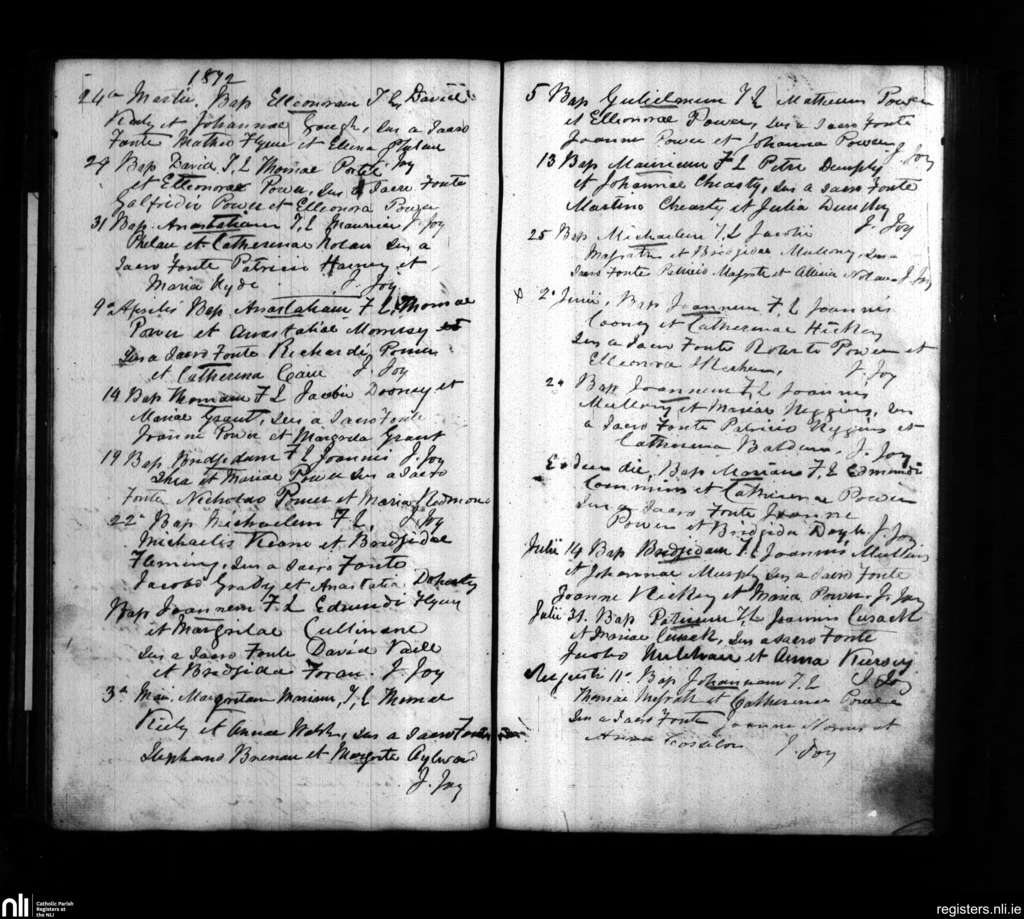 1872
24a Martii. Bap Elleonoram F. L. Davidi
Kiely et Johannae Gough, Sus a Sacro
Fonte Matheo Flynn et Ellena Phelan
29 Bap David F. L Thomae J. Joy
et Elleonorae Power, Sus a Sacro Fonte
Galfridio Power et Elleonora Power
31 Bap. Anastatiam F, L Maurici J. Joy
Phelan et Catherinae Nolan Sus a
Sacro Fonte Patricii et
Maria Hyde J. Joy
9a Aprilis Bap Anastatiam F L Thomae
Power et Anastatiae Morrisey
Sus a Sacro Fonte Richardi Power
et Catherina J. Joy
14 Bap Thomam F L Jacobi et
Mariae Grant, Sus a Sacro Fonte
Joanne Power et Margreta Grant
19 Bap Bridgidam F L Joannis J. Joy
Shea et Mariae Power Sus a Sacro
Fonte Nicholas Power et Maria Redmond
22a Bap Michaelem F L. J. Joy
Michaelis Keane et Bridgidae
Fleming, Sus a Sacro Fonte
Jacobo Grady et Anastatia Doherty
Bap Joannem F L Edmundi Flynn
et Margritae Cullinane
Sus a Sacro Fonte David Vaile
et Bridgida Foran. J. Joy
3a Maii. Margritam Mariam, F, L Thomae
Kiely et Annae Walsh, Sus a Sacro Fonte
Stephano Brenan et Margrita Aylward
J. Joy
5 Bap Gulielmum F L Matheus Power
et Elleonorae Power, Sus a Sacro Fonte
Joanne Power et Johanna Power J. Joy
13 Bap Mauricum F L Petri Dunphy
et Johannae Cheasty, Sus a Sacro Fonte
Martino Cheasty et Julia Dunphy
25 Bap Michaelem F, L Jacobi J. Joy
et Bridgidae Mullony, Sus a
Sacro Fonte Patricio et Nolan J. Joy
2a Junii, Bap Joannem F. L Joannis
Cooney et Catherinae Hickey
Sus a Sacro Fonte Roberto Power et
Elleonora J. Joy
2a Bap Joannem F, L Joannis
et Mariae Higgins, Sus
a Sacro Fonte Patricio Higgins et
Catherina Baldwin J. Joy
Eodem die, Bap Mariam F, L Edmundi
Commins et Catherinae Power
Sus a Sacro Fonte Joanne
Power et Bridgida Doyle J. Joy
Julii 14 Bap Bridgidam F L Joannis Mullins
et Johannae Murphy Sus a Sacro Fonte
Joanne Hickey et Maria Power J. Joy
Julii 31. Bap Patricium F, L Joannis Cusack
et Mariae Cusack, Sus a Sacro Fonte
Jacobo et Anna Kiersey
Augusti 11a Bap Johannam F. L J. Joy
Thomae et Catherinae Power
Sus a Sacro Fonte Joanne et
Anna J. Joy
nli
Catholic Parish
Registers at
the NLI
registers.nli.ie